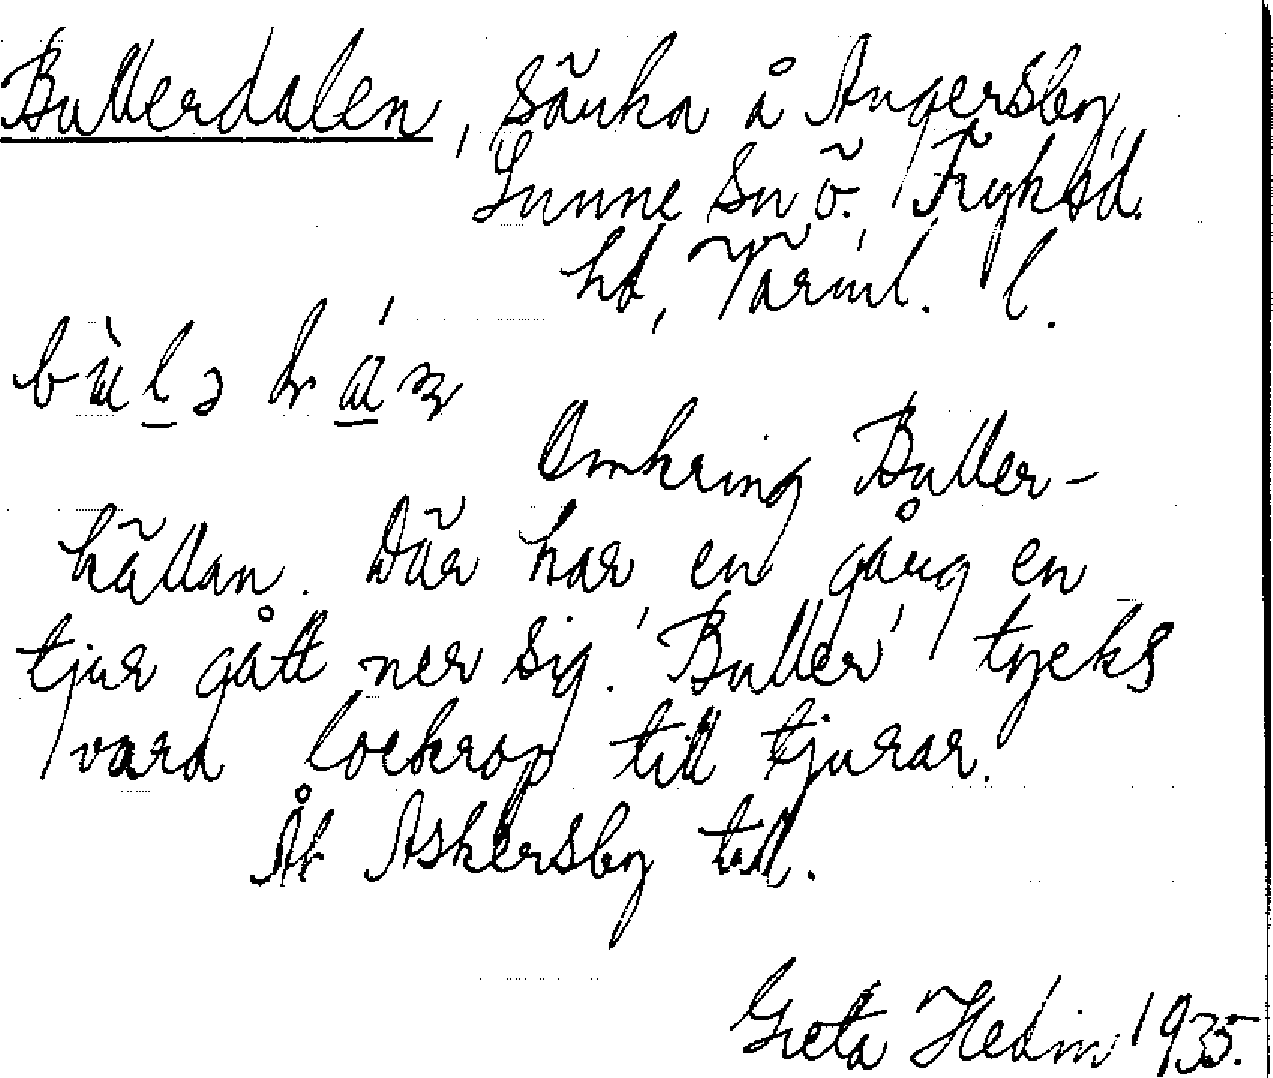 Bullerdalen, Sänka å Angersby,
Sunne Sn Ö. Fryksd.
hd, Värml. l.
Omkring Buller-
källan. Där har en gång en
tjur gått ner sig. 'Buller' tycks
vara lockrop till tjurar.
Åt Askersby till.
Greta Hedin 1935.